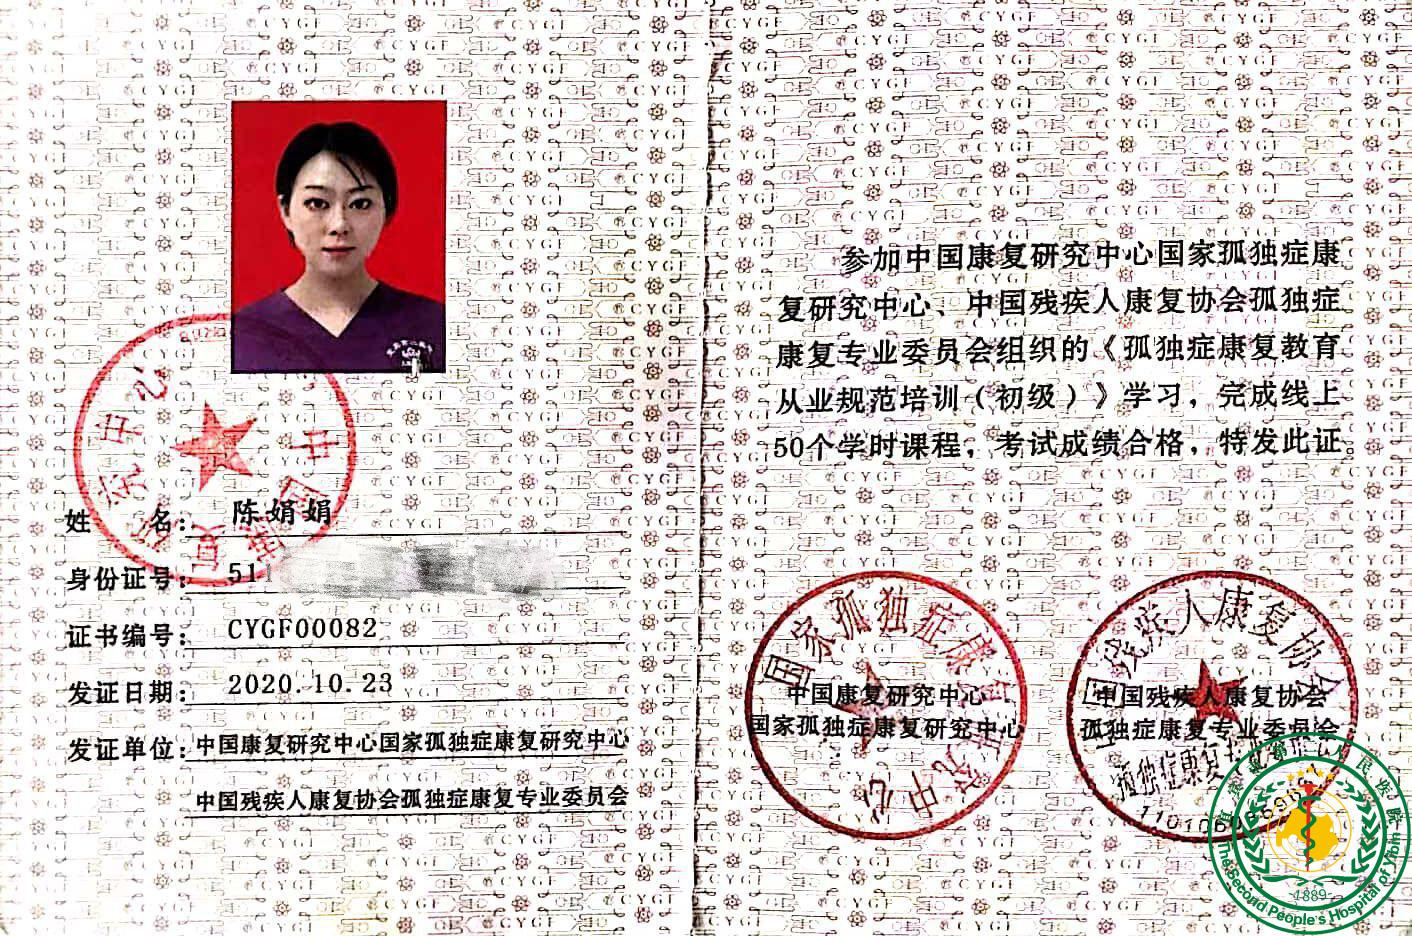 姓 名： 陈娟娟
身份证号： 511
证书编号： CYGF00082
发证日期： 2020.10.23
发证单位： 中国康复研究中心国家孤独症康复研究中心
中国残疾人康复协会孤独症康复专业委员会
参加中国康复研究中心国家孤独症康
复研究中心、中国残疾人康复协会孤独症
康复专业委员会组织的《孤独症康复教育
从业规范培训（初级）》学习，完成线上
50个学时课程，考试成绩合格，特发此证。
国家孤独症康复研究中心
中国康复研究中心
国家孤独症康复研究中心
中国残疾人康复协会
中国残疾人康复协会
孤独症康复专业委员会
The Second People's Hospital of Yibin
1889